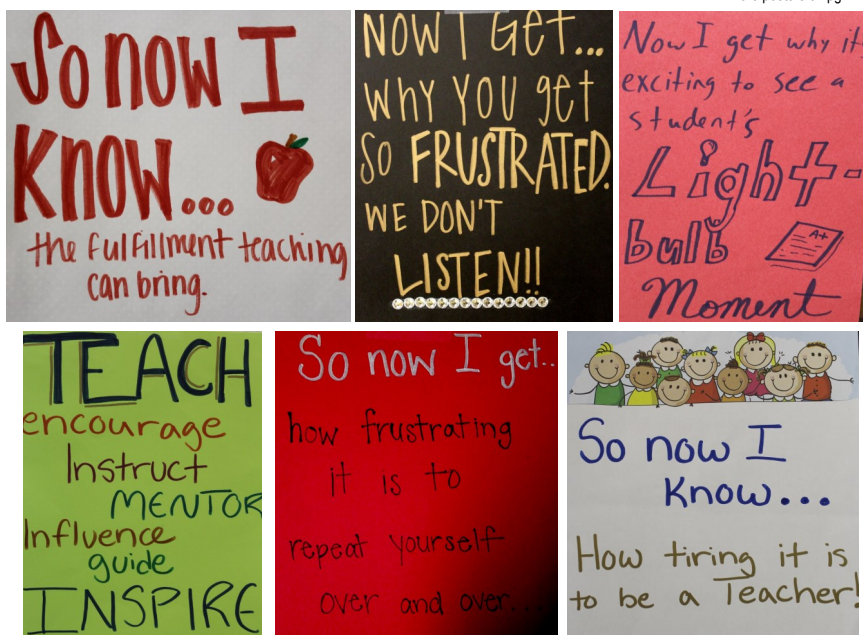 So now I
Know...
the fulfillment teaching
can bring.
NOW I GET...
WHY YOU get
SO FRUSTRATED.
WE DON'T
LISTEN!!
Now I get why it
exciting to see a
student's
Light-
bulb
A+
Moment
TEACH
encourage
Instruct
MENTOR
Influence
guide
INSPIRE
So now I get...
how frustrating
it is to
repeat yourself
over and over...
So now I
Know...
How tiring it is
to be a Teacher!